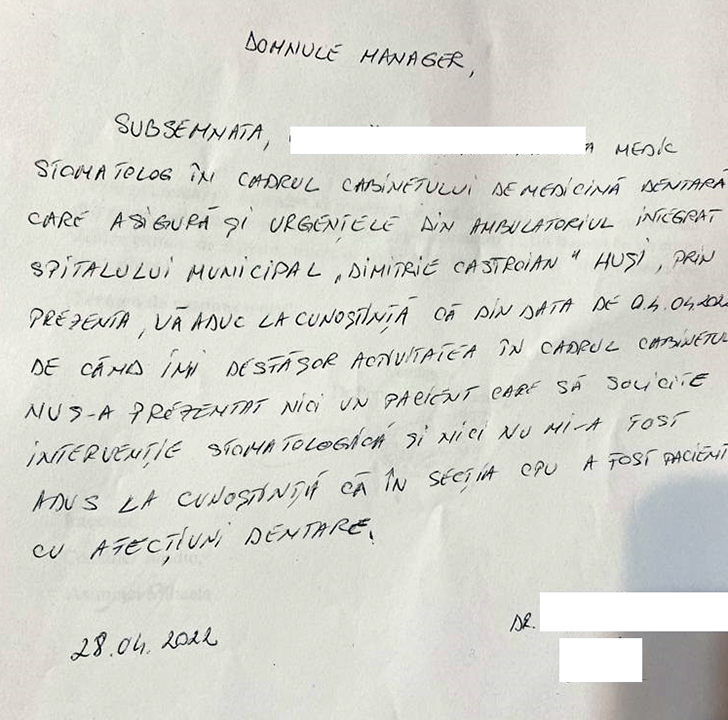 DOMNULE MANAGER,
SUBSEMNATA, MEDIC
STOMATOLOG ÎN CADRUL CABINETULUI DE MEDICINĂ DENTARĂ
CARE ASIGURĂ ȘI URGENȚELE DIN AMBULATORIUL INTEGRAT
SPITALULUI MUNICIPAL „DIMITRIE CASTROIAN" HUȘI, PRIN
PREZENTA, VĂ ADUC LA CUNOȘTINȚĂ CĂ DIN DATA DE 04.04.202
DE CÂND ÎMI DESFĂȘOR ACTIVITATEA ÎN CADRUL CABINETUL
NU S-A PREZENTAT NICI UN PACIENT CARE SĂ SOLICITE
INTERVENȚIE STOMATOLOGICĂ ȘI NICI NU MI-A FOST
ADUS LA CUNOȘTINȚĂ CĂ ÎN SECȚIA CPU A FOST PACIENT
CU AFECȚIUNI DENTARE.
DR.
28.04.2022